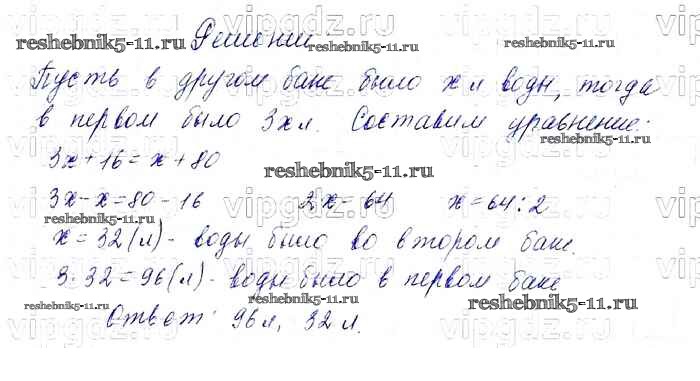 Решение
Пусть в другом баке было x л воды, тогда
в первом было 3x л. Составим уравнение:
3x+16=x+80
3x-x=80-16 2x=64 x=64:2
x=32(л)- воды было во втором баке.
3·32=96(л)- воды было в первом баке
Ответ: 96 л, 32 л.
reshebnik5-11.ru
reshebnik5-11.ru
reshebnik5-11.ru
reshebnik5-11.ru
reshebnik5-11.ru
reshebnik5-11.ru
reshebnik5-11.ru
reshebnik5-11.ru
reshebnik5-11.ru
vipgdz.ru
vipgdz.ru
vipgdz.ru
vipgdz.ru